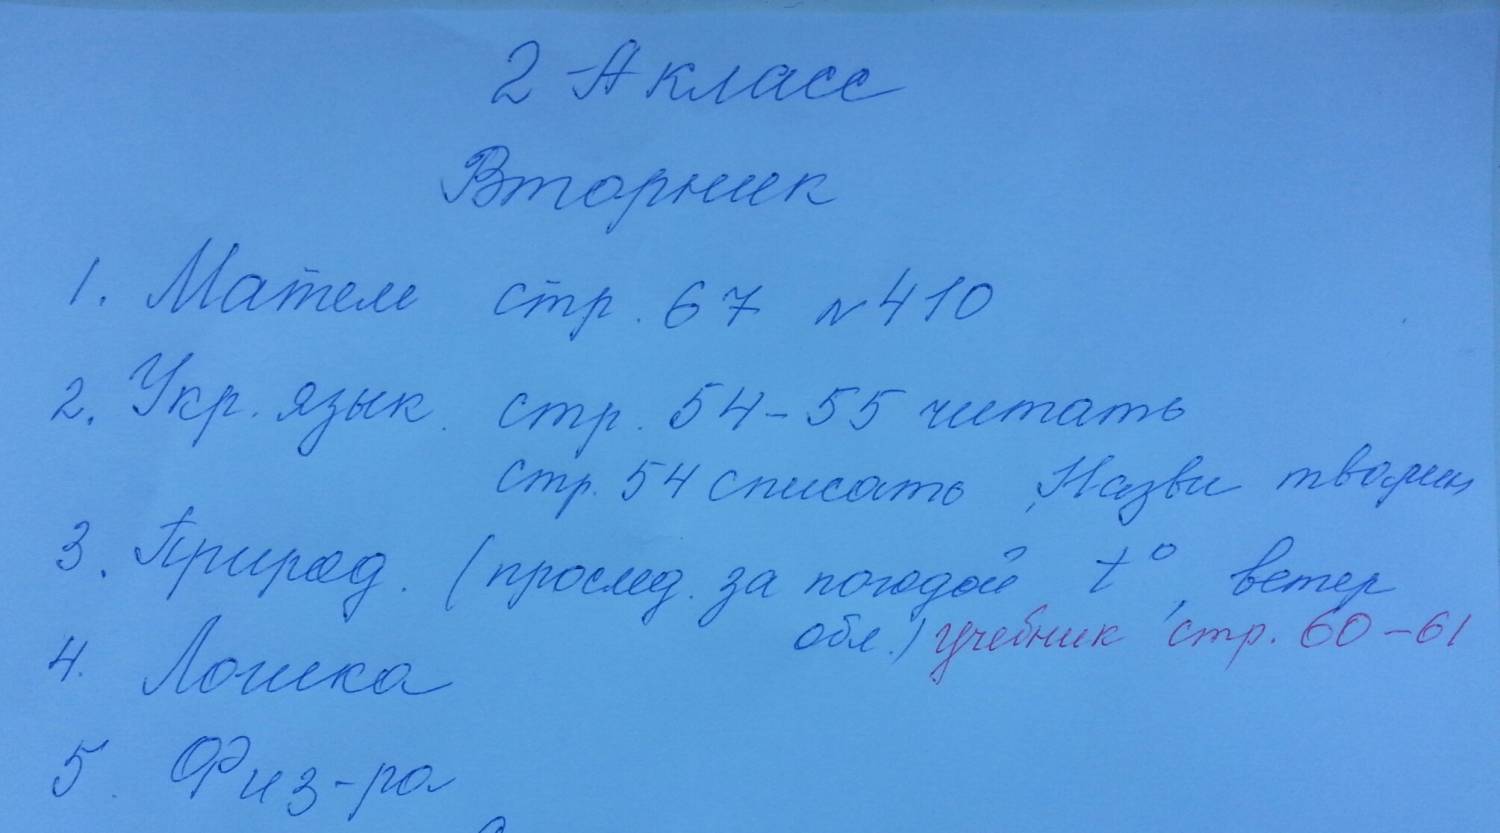 2-А класс
Вторник
1. Матем стр. 67 №410
2. Укр. язык. стр. 54-55 читать
стр. 54 списать „Назви тварин
3. Природ. (прослед. за погодой t°, ветер
обл.) учебник стр. 60-61
4. Логика
5. Физ-ра